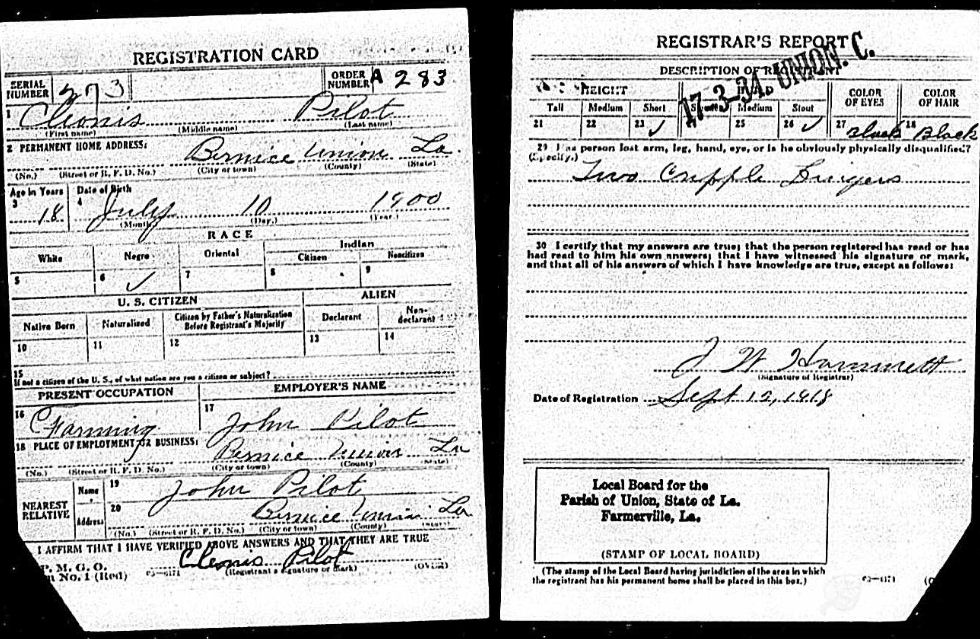 REGISTRATION CARD
SERIAL NUMBER 273
ORDER NUMBER A 283
1 Cleonis Pilot
(First name) (Middle name) (Last name)
2 PERMANENT HOME ADDRESS:
Bernice Union La.
(No.) (Street or R. F. D. No.) (City or town) (County) (State)
Age in Years Date of Birth
3 18 4 July 10 1900
(Month.) (Day.) (Year.)
RACE
White Negro Oriental Indian
Citizen Noncitizen
5 6 ✓ 7 8 9
U. S. CITIZEN ALIEN
Native Born Naturalized Citizen by Father's Naturalization Before Registrant's Majority Declarant Non-declarant
10 11 12 13 14
15
If not a citizen of the U. S., of what nation are you a citizen or subject?
PRESENT OCCUPATION EMPLOYER'S NAME
16 Farming 17 John Pilot
18 PLACE OF EMPLOYMENT OR BUSINESS:
Bernice Union La
(No.) (Street or R. F. D. No.) (City or town) (County) (State)
NEAREST RELATIVE
Name 19 John Pilot
Address 20 Bernice Union La
(No.) (Street or R. F. D. No.) (City or town) (County) (State)
I AFFIRM THAT I HAVE VERIFIED ABOVE ANSWERS AND THAT THEY ARE TRUE
P. M. G. O.
No. 1 (Red) 03—6171 Cleonis Pilot
(Registrant's signature or mark) (OVER)
REGISTRAR'S REPORT
17-3-34. UNION. C.
DESCRIPTION OF REGISTRANT
HEIGHT COLOR OF EYES COLOR OF HAIR
Tall Medium Short Medium Stout
21 22 23 ✓ 25 26 ✓ 27 Black 18 Black
29 Has person lost arm, leg, hand, eye, or is he obviously physically disqualified?
(Specify.)
Two Cripple Fingers
30 I certify that my answers are true; that the person registered has read or has
had read to him his own answers; that I have witnessed his signature or mark,
and that all of his answers of which I have knowledge are true, except as follows:
J W Hammett
(Signature of Registrar)
Date of Registration Sept 12, 1918
Local Board for the
Parish of Union, State of La.
Farmerville, La.
(STAMP OF LOCAL BOARD)
(The stamp of the Local Board having jurisdiction of the area in which
the registrant has his permanent home shall be placed in this box.)
03—6171